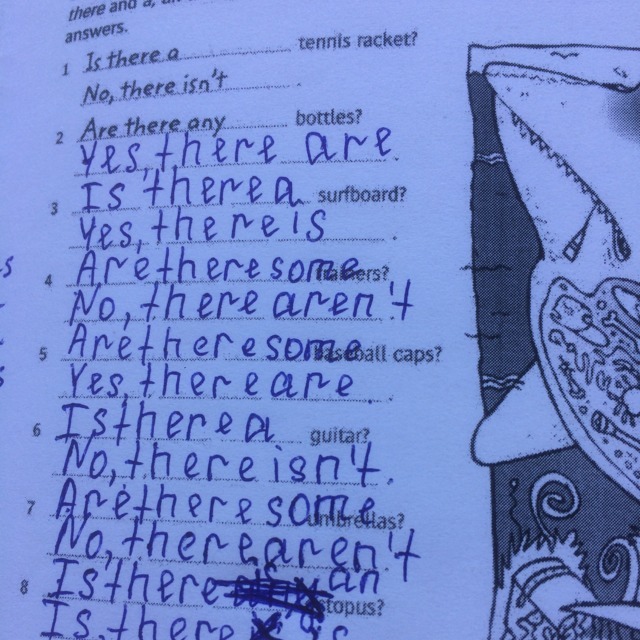 there and a, an
answers.
1 Is there a tennis racket?
No, there isn't.
2 Are there any bottles?
Yes, there are.
3 Is there a surfboard?
Yes, there is.
4 Are there some
No, there aren't.
5 Are there some baseball caps?
Yes, there are.
6 Is there a guitar?
No, there isn't.
7 Are there some umbrellas?
No, there aren't
8 Is there an
Is there